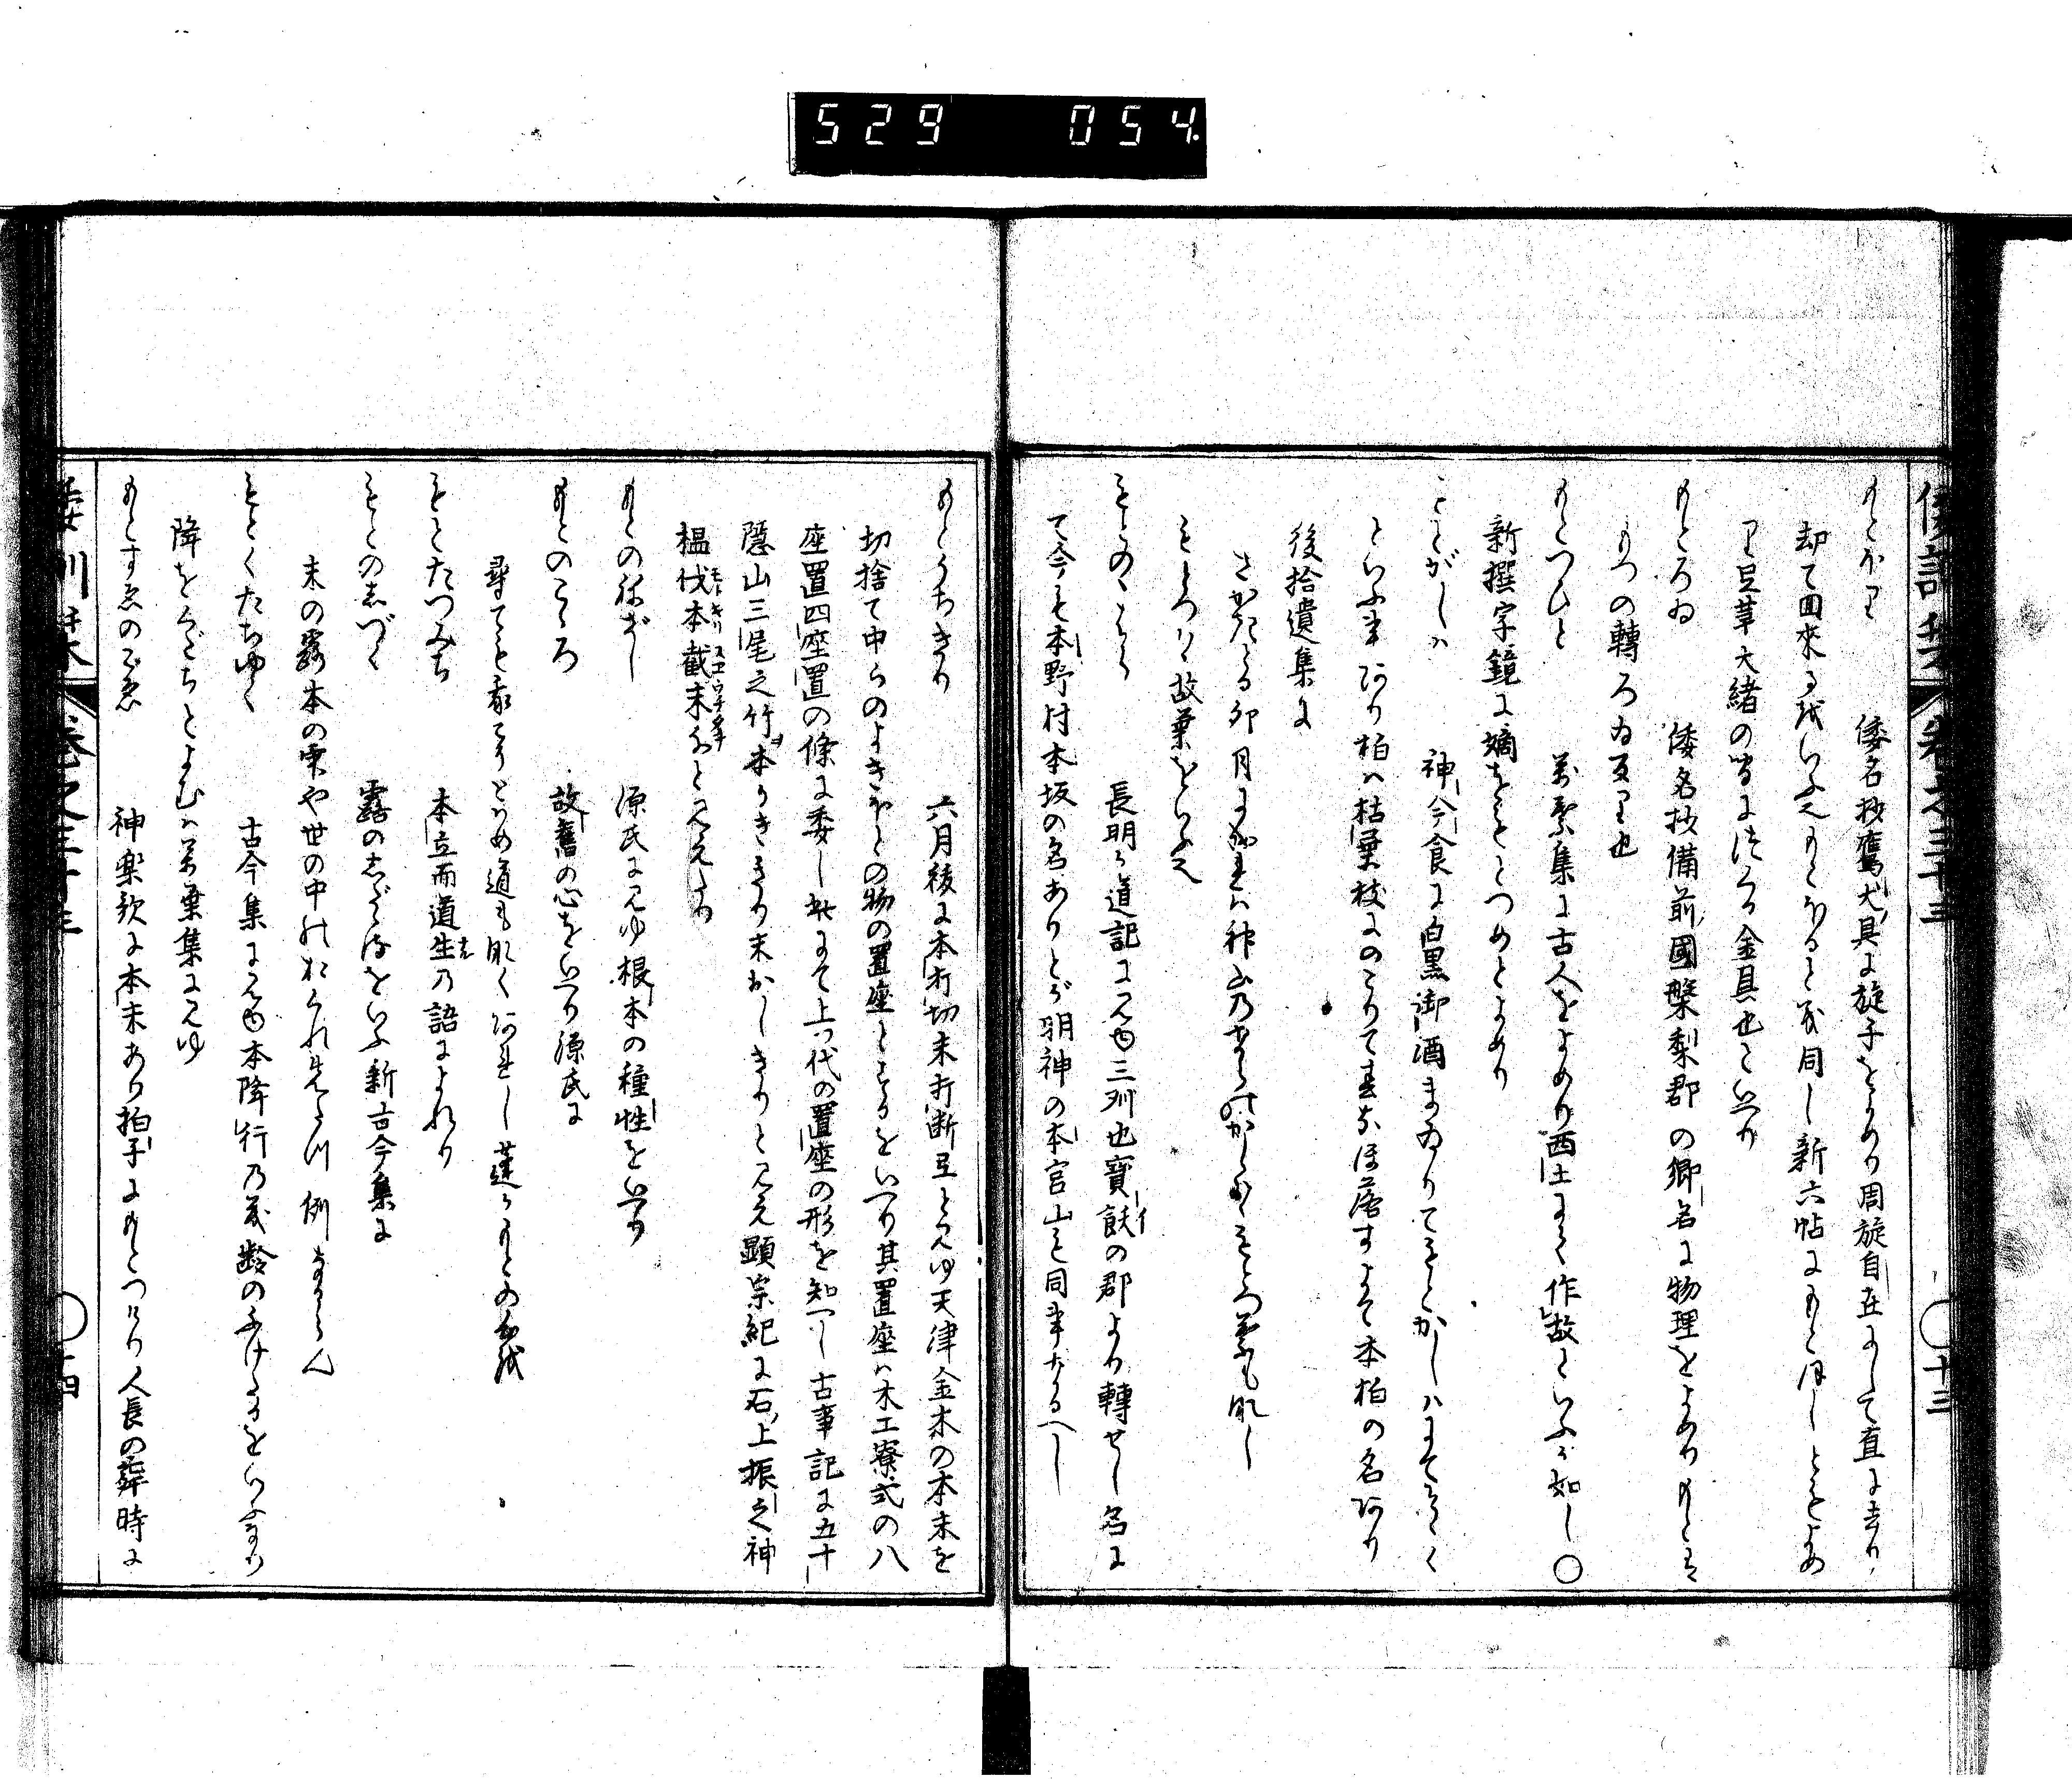 529 054.
もとほり 倭名抄鷹犬具に旋子をよめり周旋自在にして直に去り
却て回来るをいふ也もとほると義同し新六帖にもとほしともよめ
り豆葦大緒の時につくる金具也といへり
もとろゐ 倭名抄備前國磐梨郡の郷名に物理をよめりもともと
もつの轉ろゐ反り也
もとつひと 萬葉集に古人をよめり西土にも作故といふか如し○
新撰字鏡に嫡をもとつめとよめり
もとがしハ 神今食に白黒御酒まゐりてもとかしハにてそゝく
といふ事あり柏ハ枯葉枝のこりて春なほ落すよて本柏の名あり
後拾遺集に
さかきとる卯月になれハ神山のならのかしハもとつ葉も那し
もとつハゝ故葉をいふ也
もとのゝはら 長明か道記に見ゆ三州也寶飫の郡より轉せし名に
て今も本野村本坂の名ありとが明神の本宮山も同事なるへし
もとうちきり 六月祓に本打切末打断立と見ゆ天津金木の本末を
切捨て中らのよきほとの物の置座とするをいへり其置座ハ木工寮式の八
座置四座置の條に委し此にて上つ代の置座の形を知へし古事記に五十
隠山三尾之竹本かききり末おしきりと見え顕宗紀に石上振之神
榲伐本截末なと見えたり
もとのねざし 源氏に見ゆ根本の種性をいへり
もとのこゝろ 故舊の心をいへり源氏に
尋ても我こそとハめ道も那くふかき蓬かもとの心を
もとたつみち 本立而道生の語によれり
もとの志づく 露の志たゝるをいふ新古今集に
末の露本の雫や世の中のおくれ先たつ例なるらん
もとくたちゆく 古今集に見ゆ本降行の義齢のふけたるをいふなり
降をくだちとよむハ萬葉集に見ゆ
もとすゑのこゑ 神楽歌に本末あり拍子にもとつけり人長の舞時に